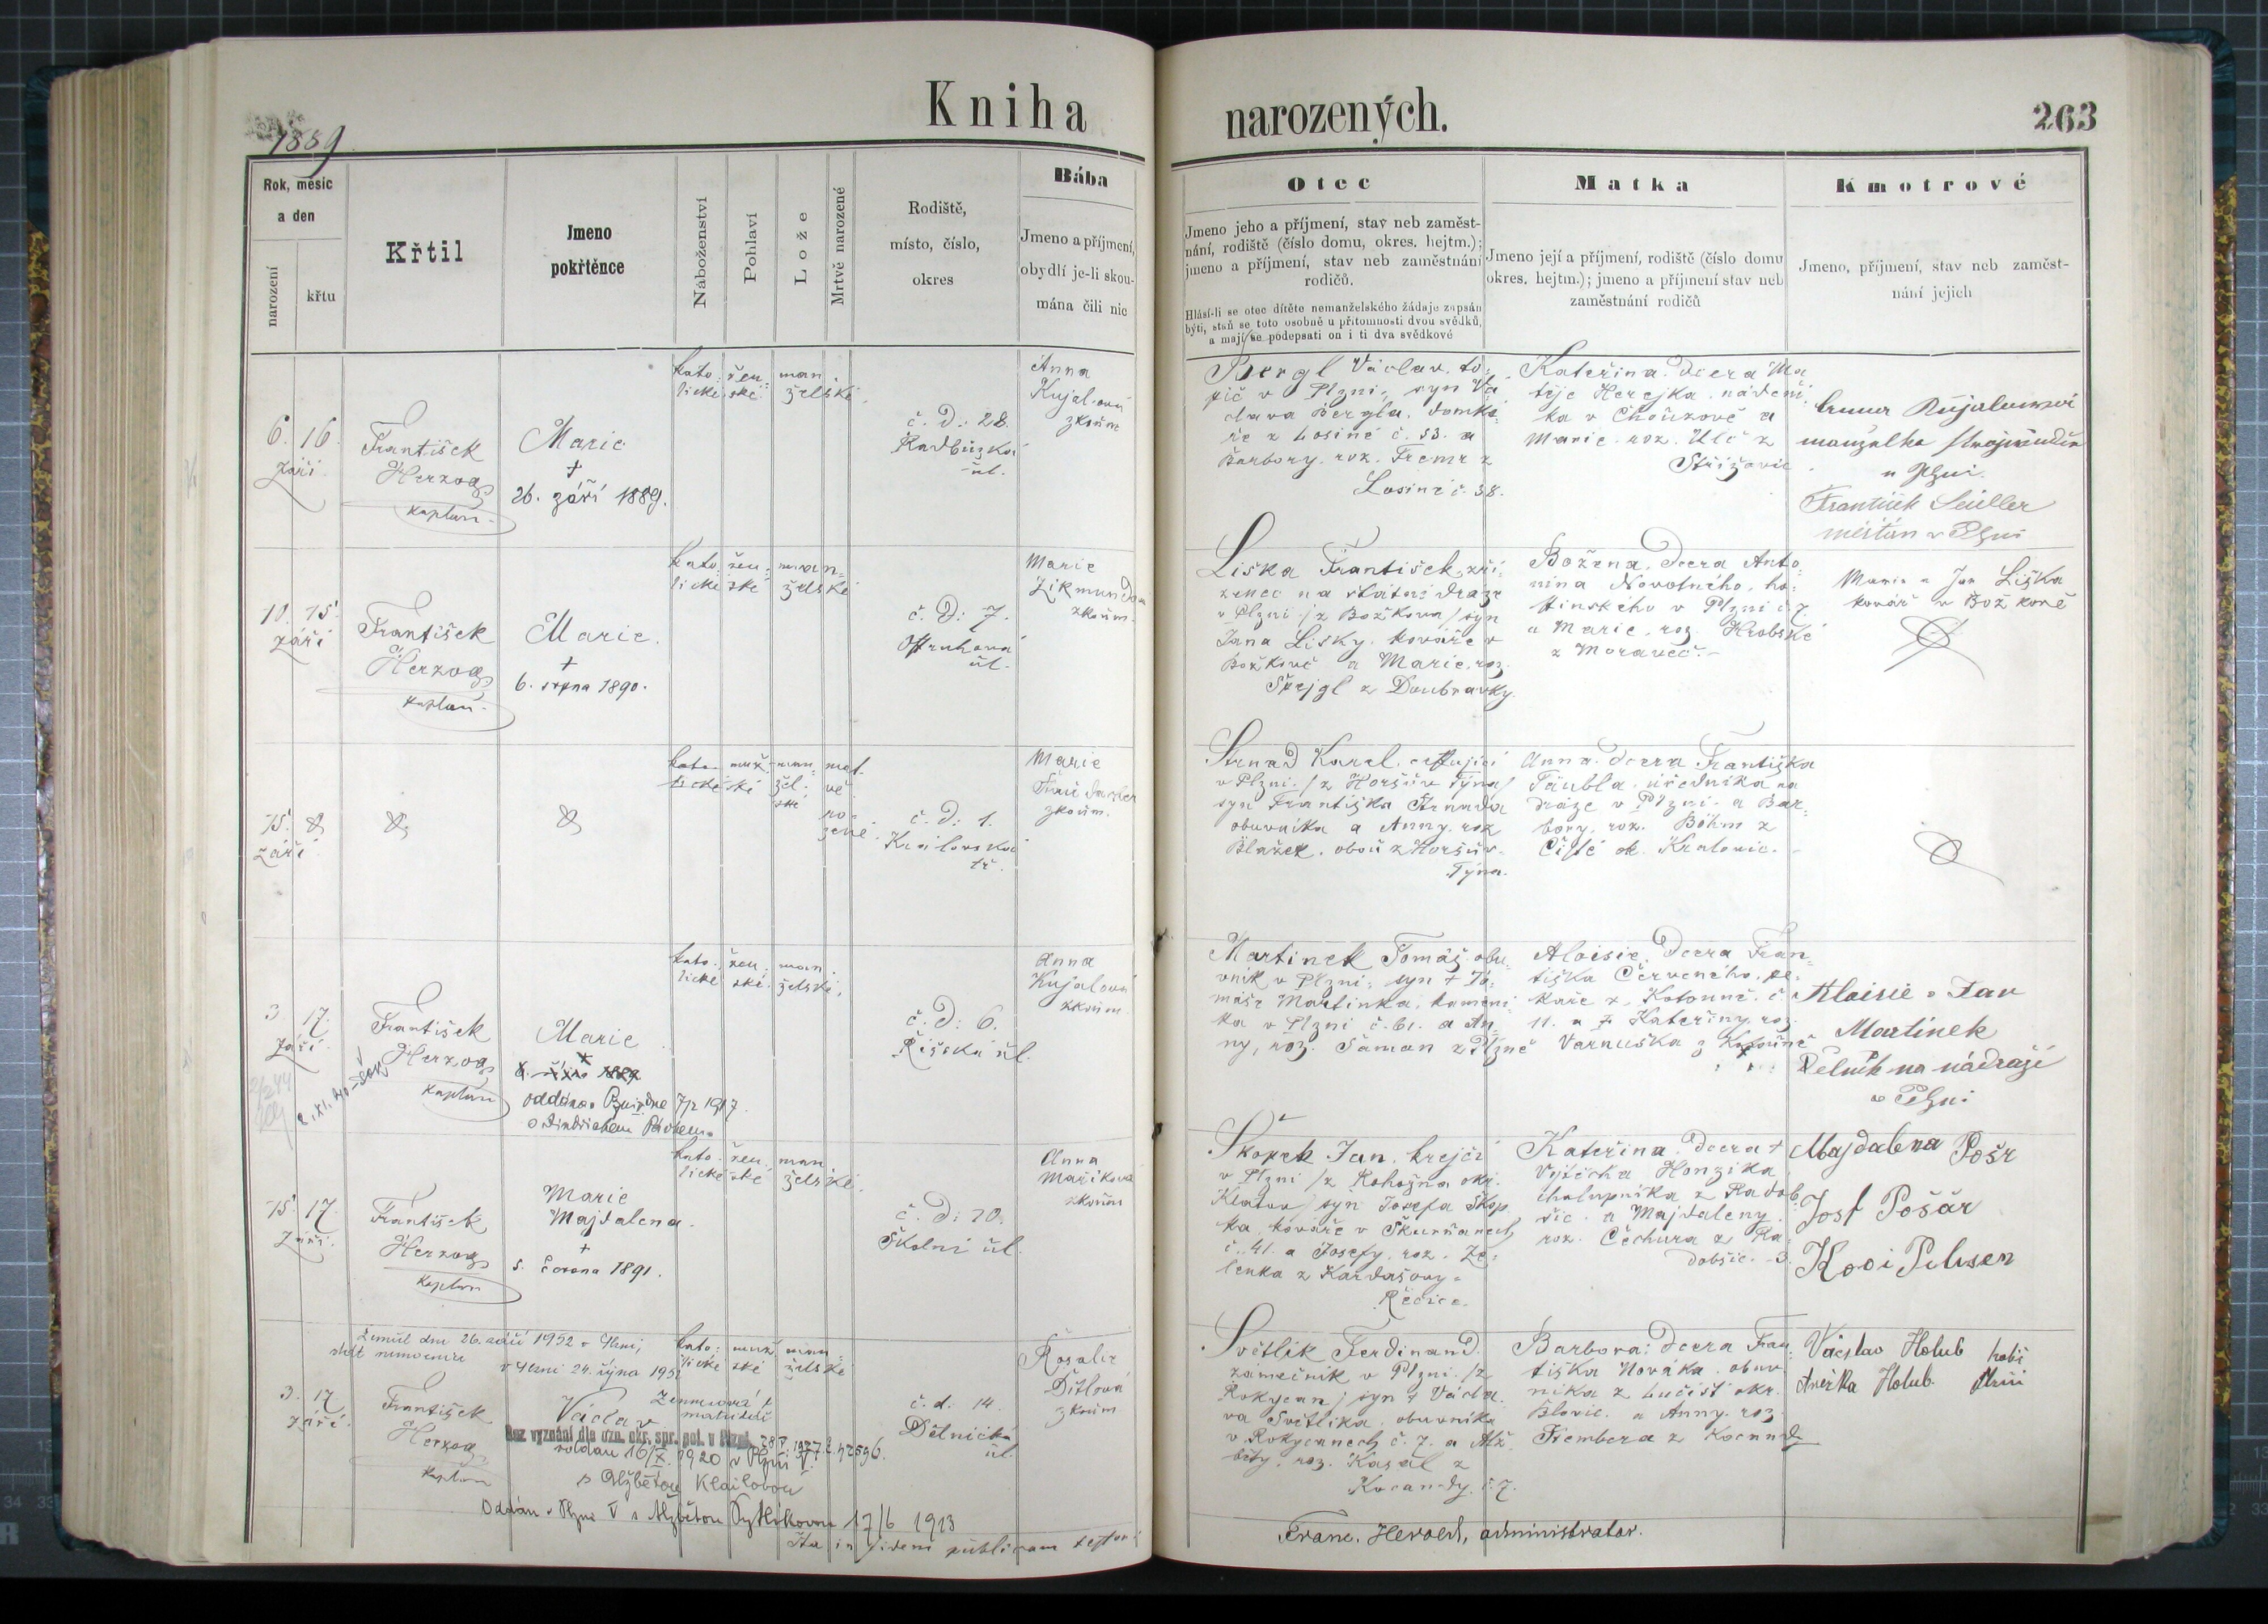 Kniha
narozených.
263
1889
Rok, měsíc
a den
narození
křtu
Křtil
Jmeno
pokřtěnce
Náboženství
Pohlaví
Lože
Mrtvě narozené
Rodiště,
místo, číslo,
okres
Bába
Jmeno a příjmení,
obydlí je-li skou-
mána čili nic
Otec
Jmeno jeho a příjmení, stav neb zaměst-
nání, rodiště (číslo domu, okres. hejtm.);
jmeno a příjmení, stav neb zaměstnání
rodičů.
Hlásí-li se otec dítěte nemanželského žádaje zapsán
býti, staň se toto osobně u přítomnosti dvou svědků,
a mají se podepsati on i ti dva svědkové
Matka
Jmeno její a příjmení, rodiště (číslo domu
okres. hejtm.); jmeno a příjmení stav neb
zaměstnání rodičů
Kmotrové
Jmeno, příjmení, stav neb zaměst-
nání jejich
6. 16.
září
František
Herzog
kaplan
Marie
†
26. září 1889.
kato- žen- man-
lické ské želské
č. D: 28.
Radbuzská
ul.
Anna
Kujalová
zkoum
Bergl Václav, to-
pič v Plzni, syn Vá-
clava Bergla, domká-
ře z Losiné č. 53. a
Barbory, roz. Fremr z
Losiné č. 38.
Kateřina, dcera Ma
těje Herejka, nádení-
ka v Chouzově a
Marie, roz. Ulč z
Střížovic
manželka
v Plzni.
František Seidler
měšťan v Plzni
10. 15.
září
František
Herzog
kaplan
Marie.
†
6. srpna 1890.
kato- žen- man-
lické ské želské
č. D: 7.
Ostruhová
ul.
Marie
Zikmundová
zkoum.
Liška František, zří-
zenec na státní dráze
v Plzni /z Božkova/ syn
Jana Lišky, kováře v
Božkově a Marie, roz.
Špejgl z Doubravky.
Božena, dcera Anto-
nína Novotného, ho-
stinského v Plzni č. 7
a Marie, roz. Hrobské
z Moravče.
Marie a Jan Liška
kovář v Božkově
15.
září
kato- muž- man- mrt-
lické ské žel- vě
ské ro-
zené.
č. D: 1.
Královská
tř.
Marie
zkoum.
Strnad Karel, cestující
v Plzni /z Horšův Týna/
syn Františka Strnada
obuvníka a Anny, roz
Blažek, obou z Horšův
Týna.
Anna, dcera Františka
Täubla, úředníka na
dráze v Plzni a Bar-
bory, roz. Böhm z
Čisté ok. Kralovic.
3. 17.
září
František
Herzog
kaplan
Marie
oddána 7/2 1917
s Jindřichem
kato- žen- man-
lické ské želské.
č. D: 6.
Říšská ul.
Anna
Kujalová
zkoum
Martínek Tomáš, obu-
vník v Plzni, syn † To-
máše Martínka, kamení-
ka v Plzni č. 61. a An-
ny, roz. Šaman z Plzně
Aloisie, dcera Fran-
tiška Červeného, pe-
kaře z Kotouně č.
11. a † Kateřiny, roz.
Varnuška z Kotouně
Aloisie a Jan
Martínek
Dělník na nádraží
v Plzni
15. 17.
září.
František
Herzog
kaplan
Marie
Majdalena.
†
5. června 1891.
kato- žen- man-
lické ské želské.
č. D: 20.
Školní ul.
Anna
Maříková
zkoum
Škopek Jan, krejčí
v Plzni /z Rohozna okr.
Klatov/ syn Josefa Škop
ka, kováře v Škvrňanech
č. 41. a Josefy, roz. Ze-
lenka z Kardašovy-
Řečice.
Kateřina, dcera †
Vojtěcha Honzíka
chalupníka z Radob-
šic a Majdaleny
roz. Čechura z Ra-
dobšic. 3.
Majdalena Pošr
Josf Pošár
Zemřel dne 26. září 1952 v Plzni,
v Plzni 24. října 1952
3. 17.
září.
František
Herzog
kaplan
Václav
Bez vyznání dle ozn. okr. spr. pol. v Plzni
1927
rozloučen 16/X. 1920 v Plzni
s Alžbětou Klailovou
Oddán v Plzni V s Alžbětou 17/6 1913
kato- muž man-
lické ské želské
č. d. 14.
Dělnická
ul.
Rosalie
Ditlová
zkoum
Světlík Ferdinand,
zámečník v Plzni /z
Rokycan/ syn † Václa-
va Světlíka, obuvníka
v Rokycanech č. 7. a Alž-
běty, roz. Kasal z
Kocandy č. 7.
Barbora, dcera Fran-
tiška Nováka, obuv-
níka z Lučišť okr.
Blovic. a Anny, roz.
Trembera z Kocandy
Václav Holub
Anežka Holub
Ita in fidem publicam testor
Franc. Herold, administrator.